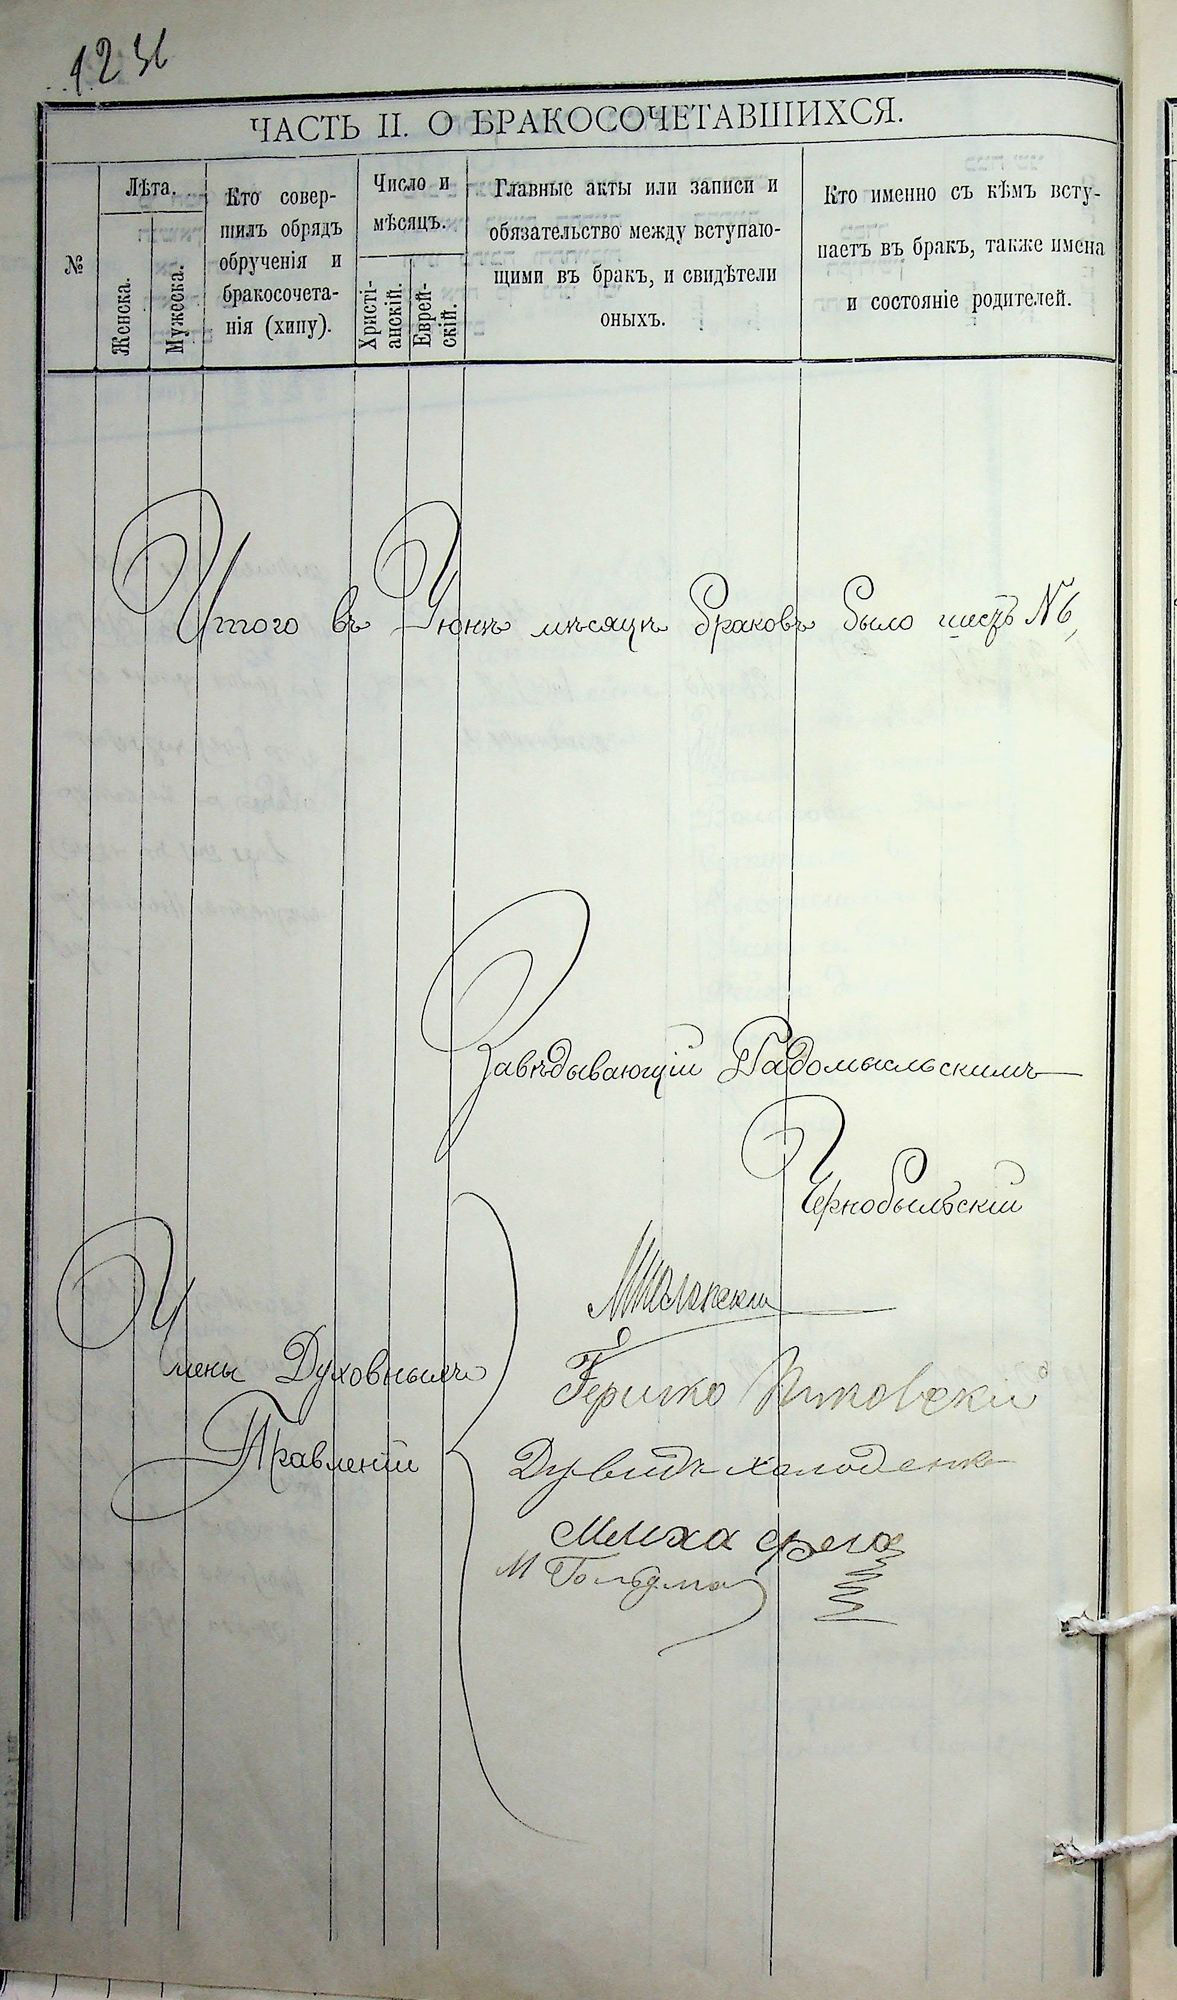 ЧАСТЬ II. О БРАКОСОЧЕТАВШИХСЯ.
№
Лѣта.
Женска.
Мужеска.
Кто совер-
шилъ обрядъ
обрученія и
бракосочета-
нія (хипу).
Число и
мѣсяцъ.
Христі-
анскій.
Еврей-
скій.
Главные акты или записи и
обязательство между вступаю-
щими въ бракъ, и свидѣтели
оныхъ.
Кто именно съ кѣмъ всту-
паетъ въ бракъ, также имена
и состояніе родителей.
Итого въ Июнѣ мѣсяцѣ браковъ было шесть №6,
Завѣдывающій Радомысльскимъ
Чернобыльскій
Члены Духовныхъ
Правленій
Гершко
Дувидъ холоденко
М Гольдман